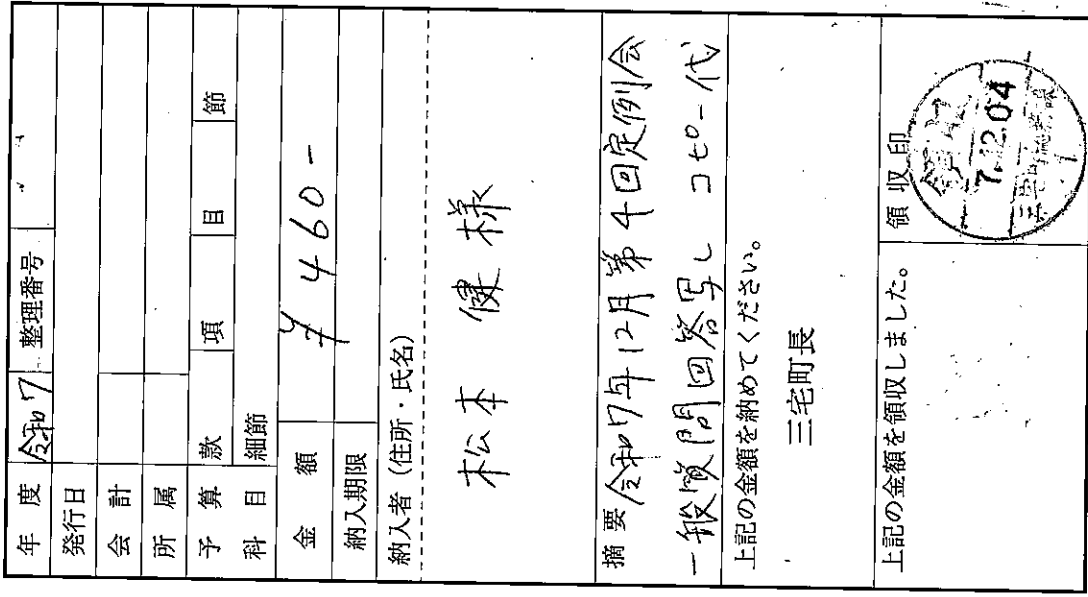 年 度 令和7 整理番号
発行日
会 計
所 属
予 算 科 目 款 項 目 節
細節
金 額 ¥460-
納入期限
納入者（住所・氏名）
松本 健 様
摘 要 令和7年12月第4回定例会
一般質問回答写し コピー代
上記の金額を納めてください。
三宅町長
上記の金額を領収しました。
領 収 印
領収
7.12.04
三宅町総務課